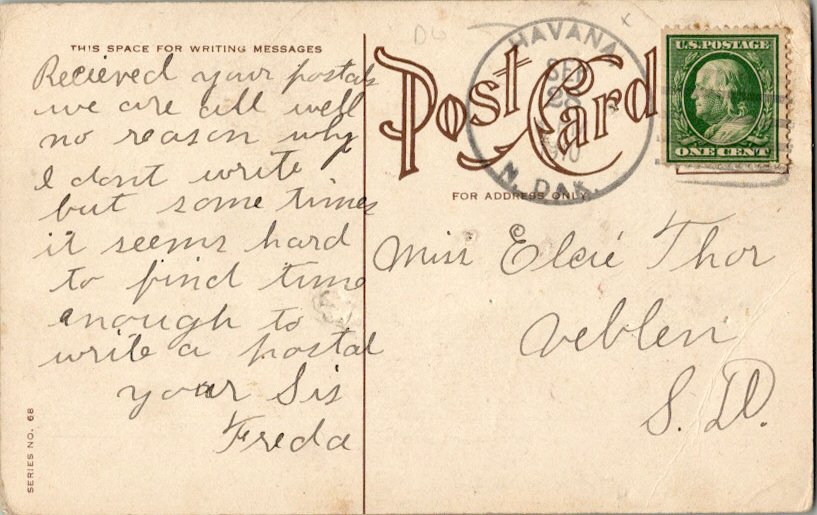 THIS SPACE FOR WRITING MESSAGES
Recieved your postals
we are all well
no reason why
I dont write
but some times
it seems hard
to find time
enough to
write a postal
your Sis
Freda
SERIES NO. 68
Post Card
FOR ADDRESS ONLY.
HAVANA
SEP
1910
N. DAK.
U.S. POSTAGE
ONE CENT
Miss Elsie Thor
Veblen
S. D.